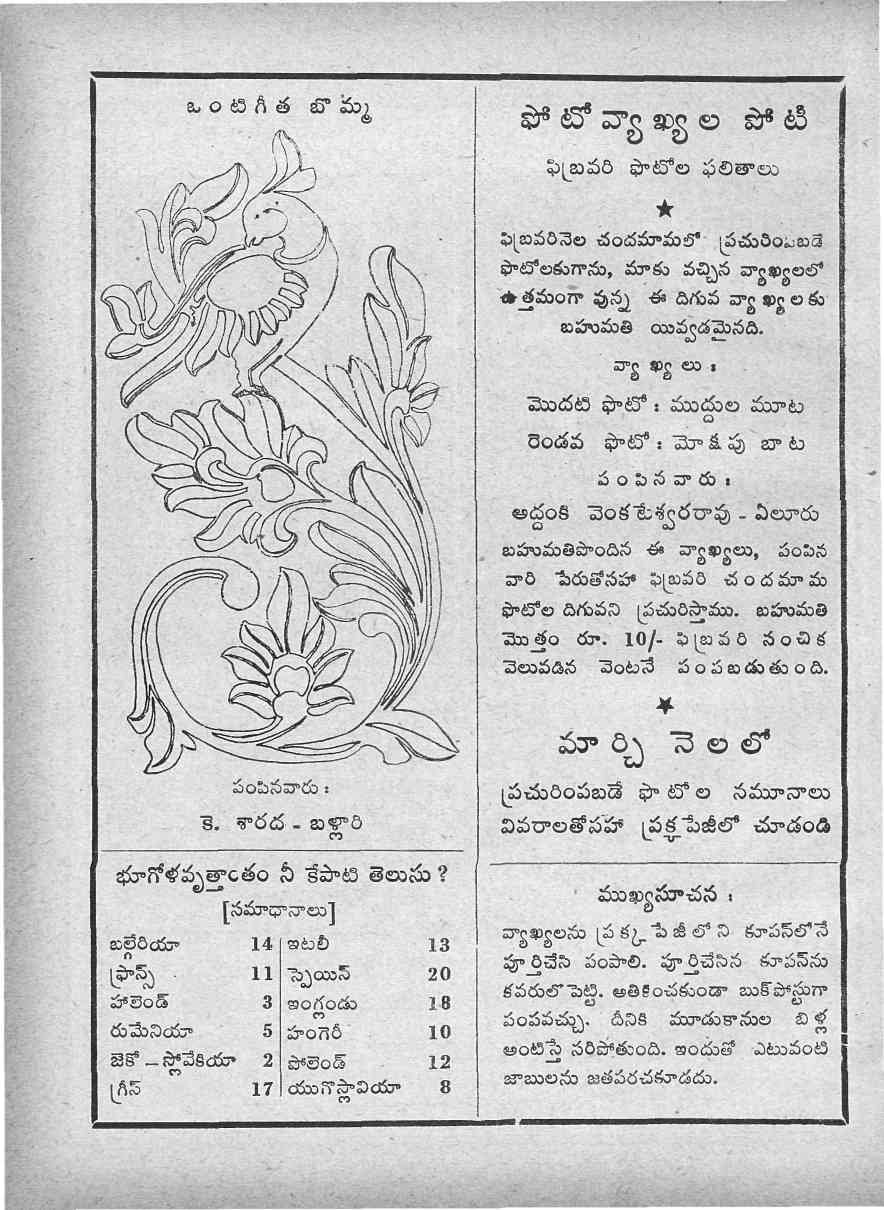 ఒంటిగీత బొమ్మ
పంపినవారు :
కె. శారద - బళ్లారి
భూగోళవృత్తాంతం నీ కేపాటి తెలుసు ?
[సమాధానాలు]
బల్గేరియా 14 ఇటలీ 13
ఫ్రాన్స్ 11 స్పెయిన్ 20
హాలెండ్ 3 ఇంగ్లండు 18
రుమేనియా 5 హంగెరీ 10
జెకో – స్లోవేకియా 2 పోలెండ్ 12
గ్రీస్ 17 యుగొస్లావియా 8
ఫోటో వ్యాఖ్యల పోటీ
ఫిబ్రవరి ఫొటోల ఫలితాలు
★
ఫిబ్రవరినెల చందమామలో ప్రచురింపబడే
ఫొటోలకుగాను, మాకు వచ్చిన వ్యాఖ్యలలో
ఉత్తమంగా వున్న ఈ దిగువ వ్యాఖ్యలకు
బహుమతి యివ్వడమైనది.
వ్యాఖ్యలు :
మొదటి ఫొటో : ముద్దుల మూట
రెండవ ఫొటో : మోక్షపు బాట
పంపినవారు :
అద్దంకి వెంకటేశ్వరరావు - ఏలూరు
బహుమతిపొందిన ఈ వ్యాఖ్యలు, పంపిన
వారి పేరుతోసహా ఫిబ్రవరి చందమామ
ఫొటోల దిగువని ప్రచురిస్తాము. బహుమతి
మొత్తం రూ. 10/- ఫిబ్రవరి నంచిక
వెలువడిన వెంటనే పంపబడుతుంది.
★
మార్చి నెలలో
ప్రచురింపబడే ఫొటోల నమూనాలు
వివరాలతోసహా ప్రక్కపేజీలో చూడండి
ముఖ్యసూచన :
వ్యాఖ్యలను ప్రక్కపేజీలోని కూపన్‌లోనే
పూర్తిచేసి పంపాలి. పూర్తిచేసిన కూపన్‌ను
కవరులో పెట్టి, అతికించకుండా బుక్‌పోస్టుగా
పంపవచ్చు. దీనికి మూడుకానుల బిళ్ల
అంటిస్తే సరిపోతుంది. ఇందుతో ఎటువంటి
జాబులను జతపరచకూడదు.